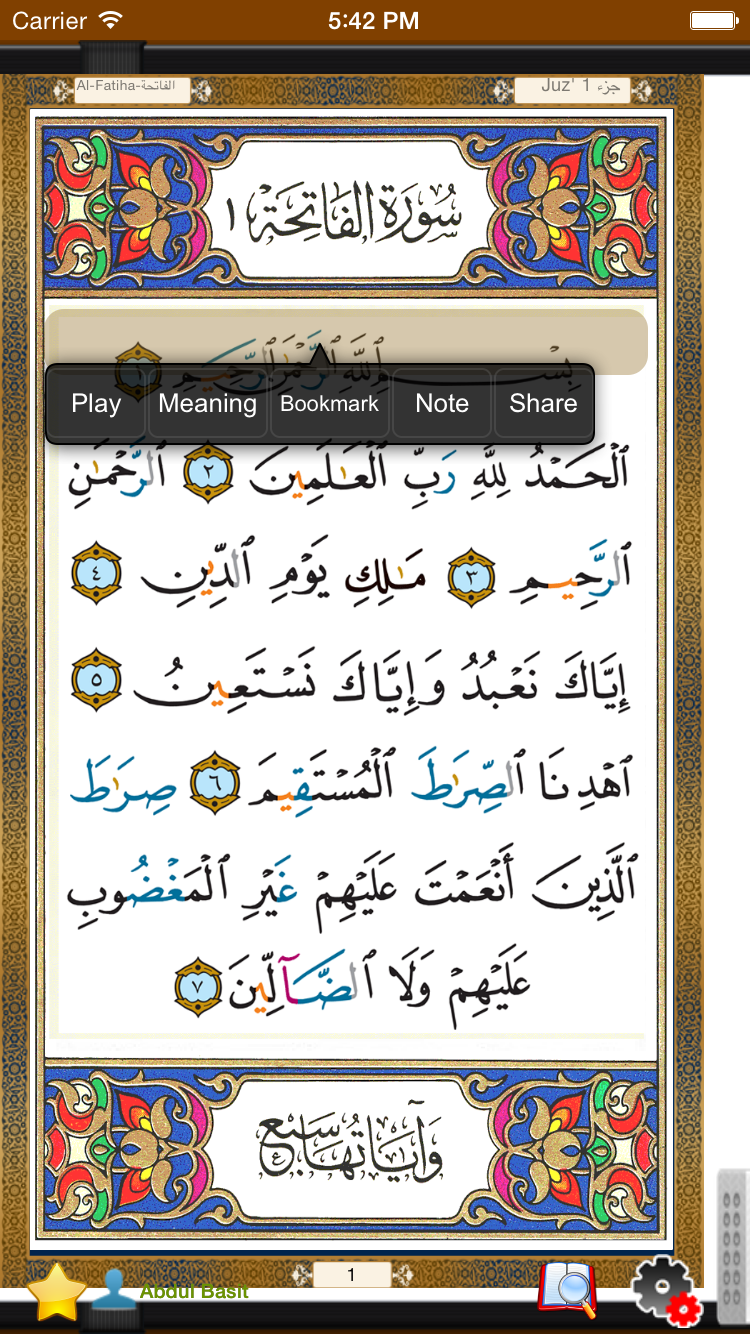 Carrier 5:42 PM
Al-Fatiha-الفاتحة Juz' 1 جزء
سُورَةُ الفَاتِحَة ١
بِسْــــمِ ٱللَّهِ ٱلرَّحْمَٰنِ ٱلرَّحِيمِ ١
Play Meaning Bookmark Note Share
ٱلْحَمْدُ لِلَّهِ رَبِّ ٱلْعَٰلَمِينَ ٢ ٱلرَّحْمَٰنِ
ٱلرَّحِيمِ ٣ مَٰلِكِ يَوْمِ ٱلدِّينِ ٤
إِيَّاكَ نَعْبُدُ وَإِيَّاكَ نَسْتَعِينُ ٥
ٱهْدِنَا ٱلصِّرَٰطَ ٱلْمُسْتَقِيمَ ٦ صِرَٰطَ
ٱلَّذِينَ أَنْعَمْتَ عَلَيْهِمْ غَيْرِ ٱلْمَغْضُوبِ
عَلَيْهِمْ وَلَا ٱلضَّآلِّينَ ٧
وَآيَاتُهَا سَبْع
1
Abdul Basit